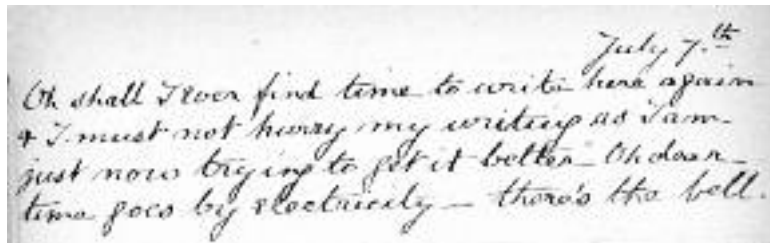 July 7.th
Oh shall I ever find time to write here again
& I must not hurry my writing as I am
just now trying to get it better - Oh dear -
time goes by electricity - there's the bell.